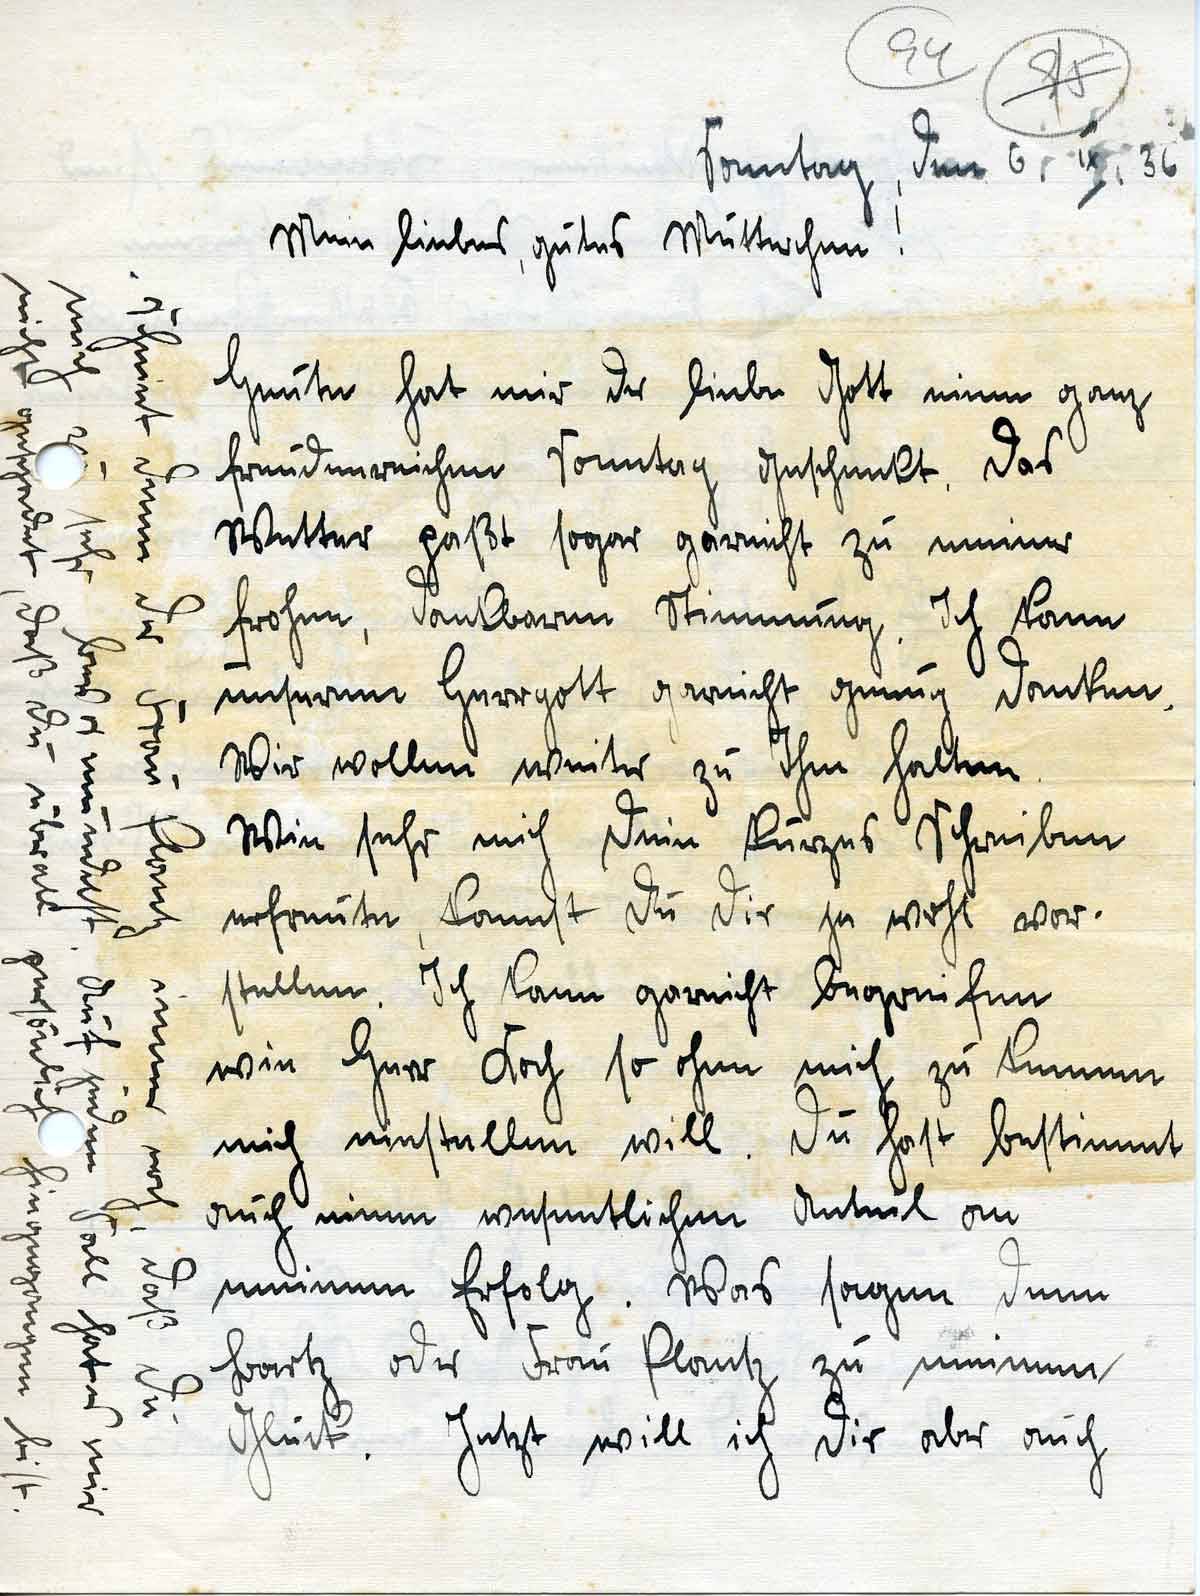 94
95
Sonntag, den 6. IX. 36
Mein liebes, gutes Mutterchen!
Heute hat mir der liebe Gott einen ganz
freudenreichen Sonntag geschenkt. Das
Wetter paßt sogar garnicht zu meiner
frohen, dankbaren Stimmung. Ich kann
unserem Herrgott garnicht genug danken.
Wir wollen weiter zu Ihm halten.
Wie sehr mich Dein kurzes Schreiben
erfreute, kannst Du Dir ja wohl vor-
stellen. Ich kann garnicht begreifen
wie Herr Koch so ohne mich zu kennen
mich einstellen will. Du hast bestimmt
auch einen wesentlichen Anteil an
meinem Erfolg. Was sagen denn
oder Frau Plantz zu meinem
Glück. Jetzt will ich Dir aber auch
Scheint denn der Frau Plantz immer noch, daß Du
mich zu sehr bemündelst. Auf jeden Fall hat es mir
nicht geschadet, daß Du überall persönlich hingegangen bist.